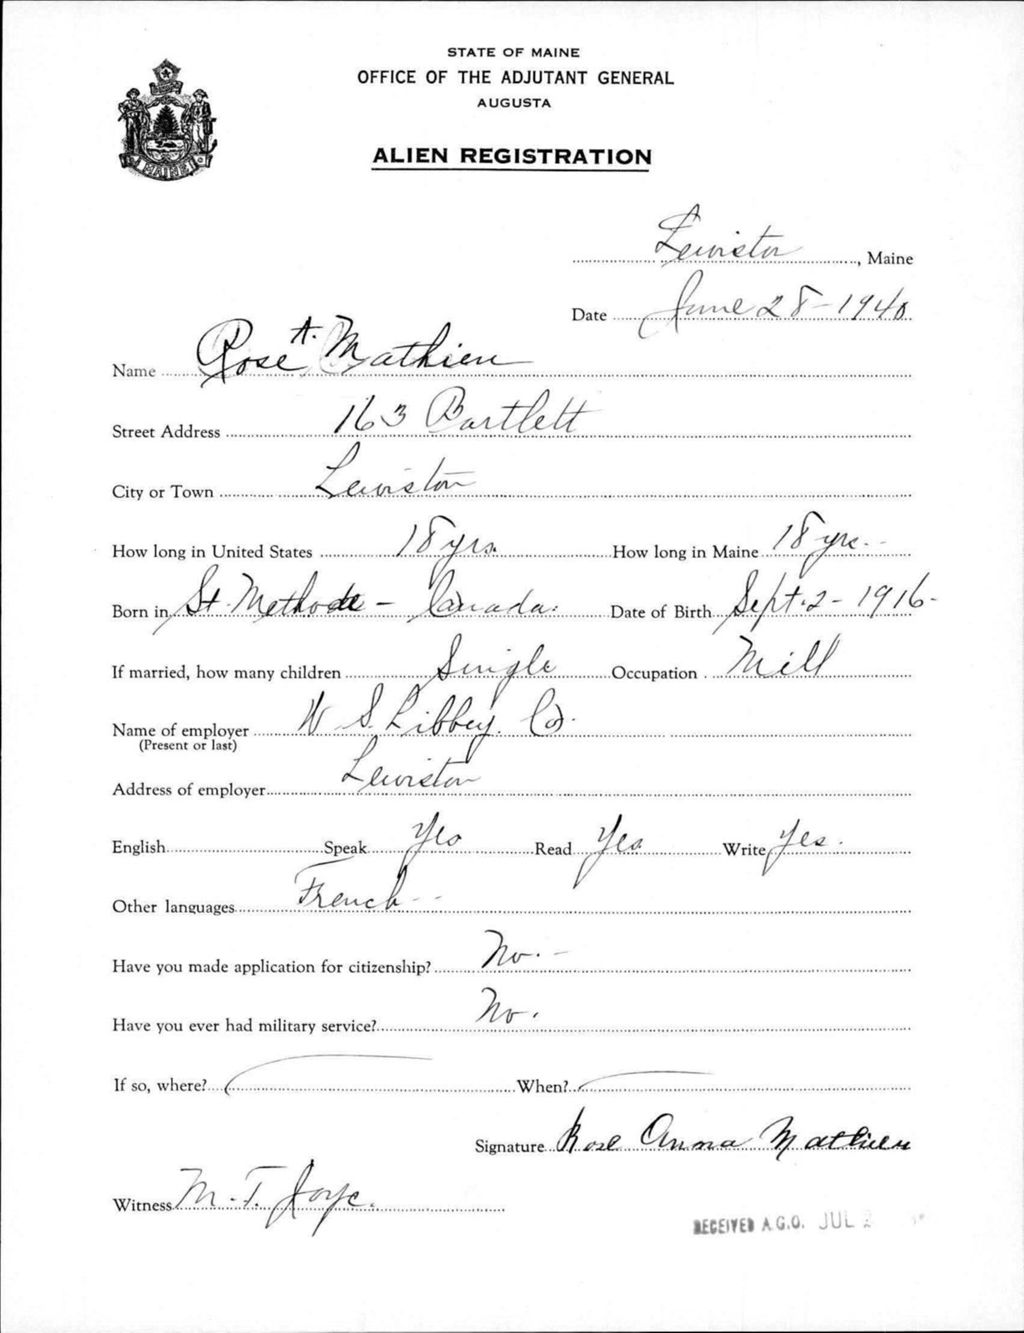 STATE OF MAINE
OFFICE OF THE ADJUTANT GENERAL
AUGUSTA
ALIEN REGISTRATION
MAINE
Lewiston, Maine
Date June 28-1940
Name Rose A. Mathieu
Street Address 163 Bartlett
City or Town Lewiston
How long in United States 18 yrs. How long in Maine 18 yrs.
Born in St. Methode - Canada. Date of Birth Sept. 2 - 1916
If married, how many children Single Occupation Mill
Name of employer W S. Libbey Co.
(Present or last)
Address of employer Lewiston
English Speak Yes Read Yes Write Yes.
Other languages French
Have you made application for citizenship? No.
Have you ever had military service? No.
If so, where? When?
Signature Rose Anna Mathieu
Witness M. T. Joyce.
RECEIVED A.G.O. JUL 2